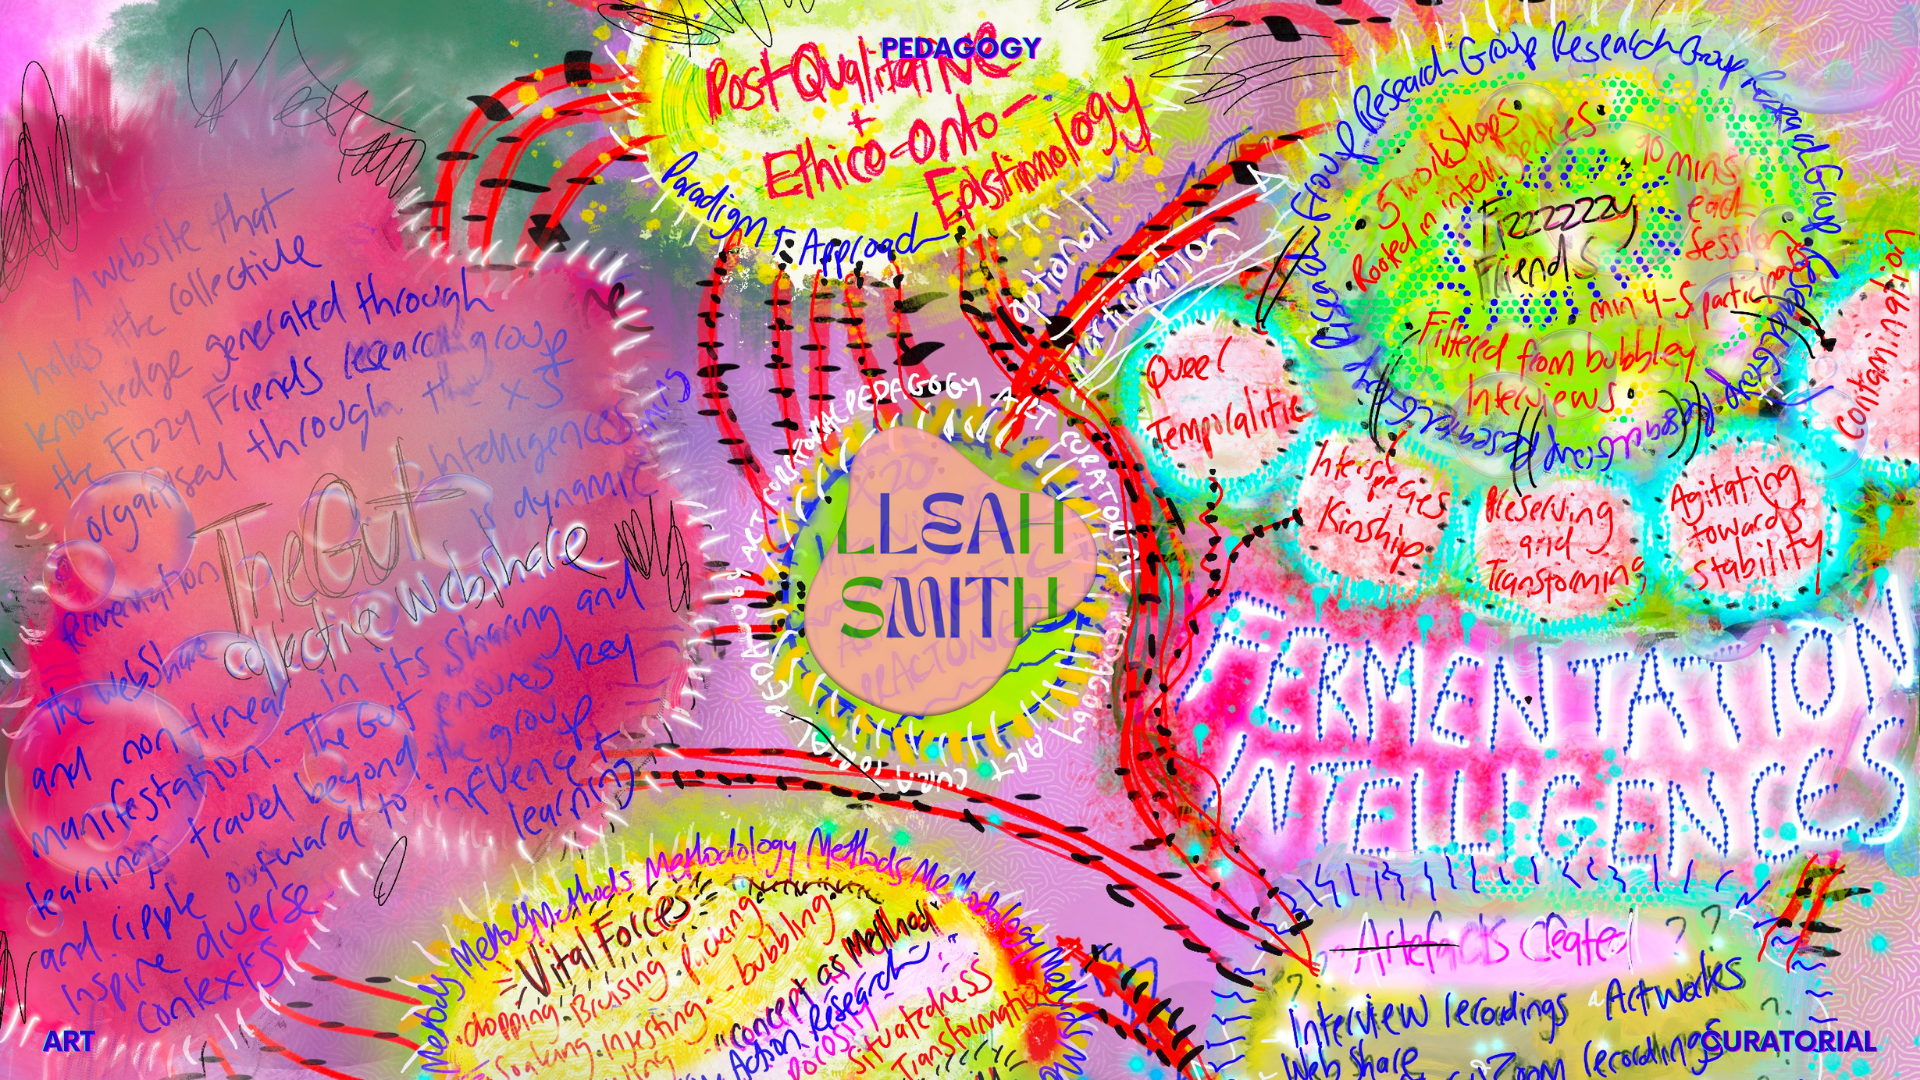 PEDAGOGY
Post Qualitative
+
Ethico-Onto-
Epistimology
Paradigm + Approach
A website that
holds the collective
knowledge generated through
the Fizzy Friends research group
organised through the x 5
fermentation intelligences
The Gut
collective Webshare
The Webshare is dynamic
and non-linear in its sharing and
manifestation. The Gut ensures key
learnings travel beyond the group
and ripple outward to influence +
inspire diverse learning
contexts
optional
participation
Research Group Research Group Research Group Research Group
5 workshops
Rooted in intelligences
90 mins
each
session
Fizzzzzy
Friends
min 4-5 participants
Filtered from bubbley
Interviews
Queer
Temporalitie
Interspecies
Kinship
Preserving
and
Transforming
Agitating
towards
Stability
Contamination
FERMENTATION
INTELLIGENCES
PEDAGOGY ART CURATORIAL PEDAGOGY ART CURATORIAL PEDAGOGY ART CURATORIAL
LLEAH
SMITH
Methodology Methods Methodology Methods Methodology
Vital Forces
chopping. Bruising. picking.
Soaking. Ingesting. bubbling.
"concept as Method"
Action Research
porosity
situatedness
Transformative
Artefacts Created ??
Interview recordings Artworks
Web share
Zoom recordings
ART
CURATORIAL